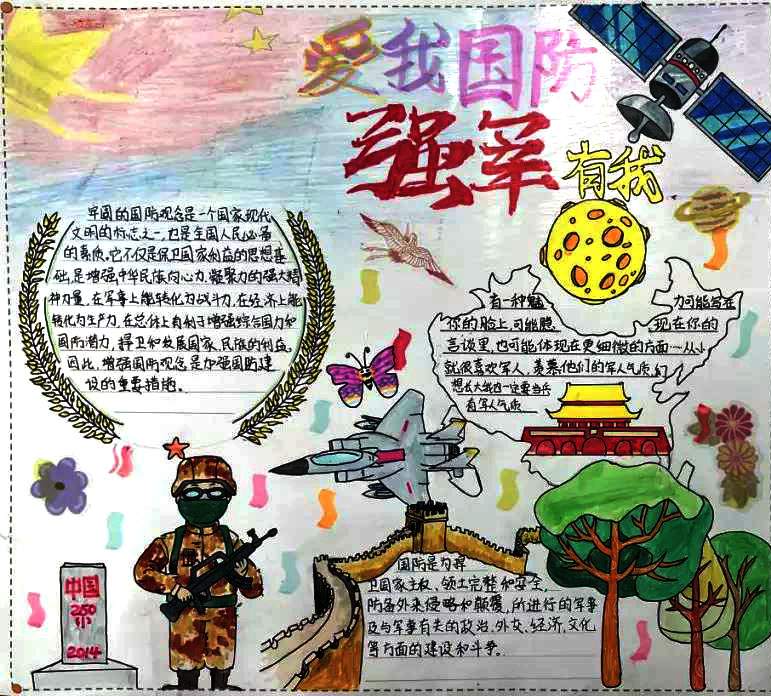 爱我国防
强军有我
牢固的国防观念是一个国家现代
文明的标志之一,也是全国人民必备
的素质。它不仅是保卫国家利益的思想基
础,是增强中华民族向心力、凝聚力的强大精
神力量,在军事上能转化为战斗力,在经济上能
转化为生产力,在总体上有利于增强综合国力和
国防潜力,捍卫和发展国家、民族的利益。
因此,增强国防观念是加强国防建
设的重要措施。
有一种魅力可能写在
你的脸上,可能隐现在你的
言谈里,也可能体现在更细微的方面……从小
就很喜欢军人,羡慕他们的军人气质,幻
想长大我也一定要当兵
有军人气质
国防是为捍
卫国家主权、领土完整和安全,
防备外来侵略和颠覆,所进行的军事
及与军事有关的政治、外交、经济、文化
等方面的建设和斗争。
中国
250
2014